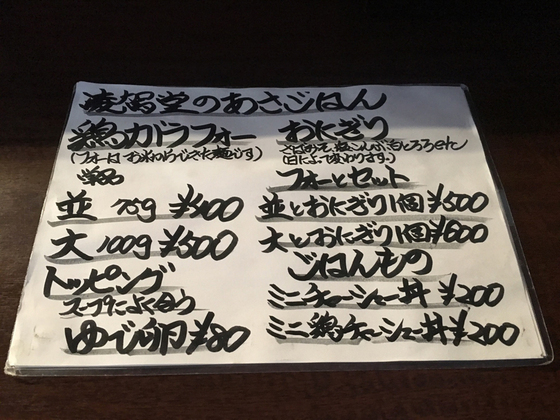 凌駕堂のあさごはん
鶏ガラフォー
(フォーは お米からできた麺です)
単品
並 75g ¥400
大 100g ¥500
トッピング
スープによく合う
ゆで卵 ¥80
おにぎり
(日によって変わります。)
フォーとセット
並とおにぎり1個 ¥500
大とおにぎり1個 ¥600
ごはんもの
ミニチャーシュー丼 ¥200
ミニ鶏チャーシュー丼 ¥200